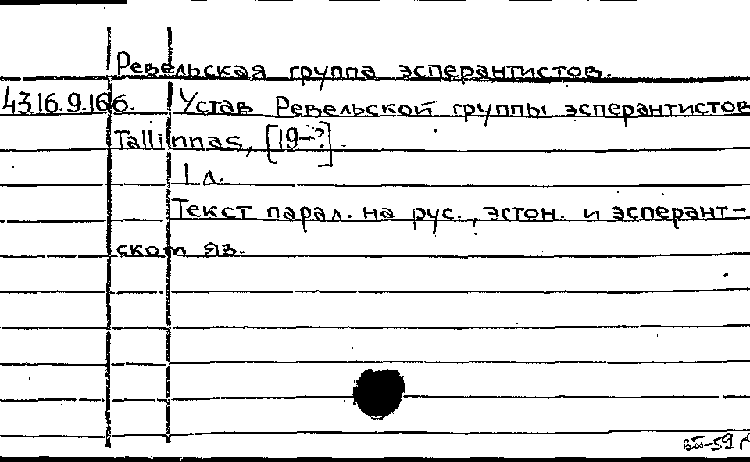 Ревельская группа эсперантистов.
4316.9.166. Устав Ревельской группы эсперантистов
Tallinnas, [19-?].
1 л.
Текст парал. на рус., эстон. и эсперант-
ском яз.